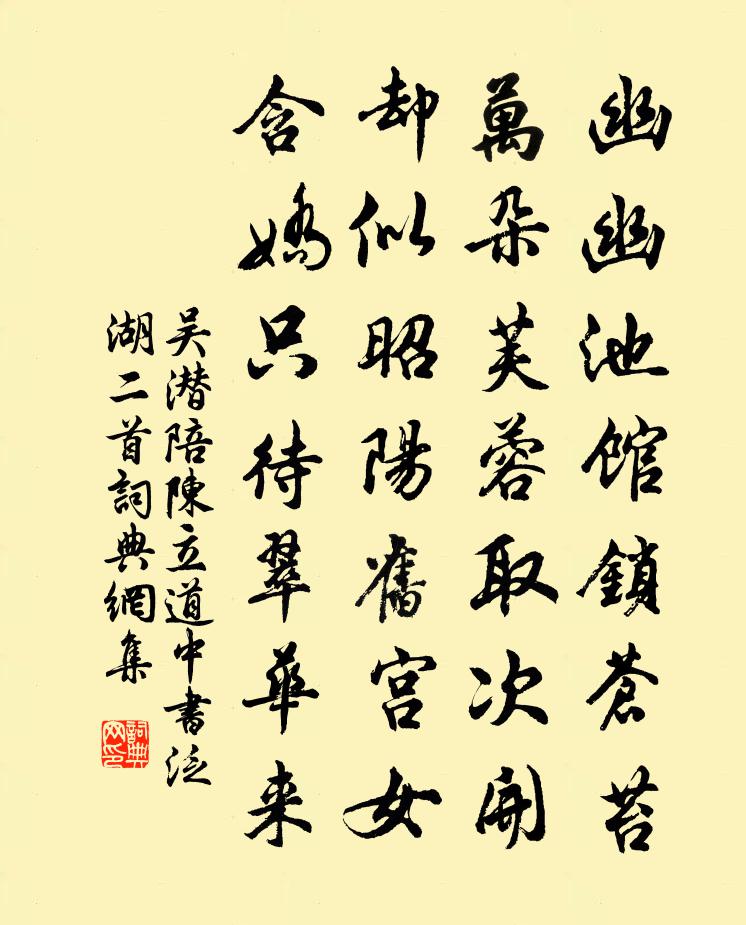 幽幽池館鎖蒼苔
萬朵芙蓉取次開
却似昭陽舊宮女
含嬌只待翠華来
吴潜陪陳立道中書泛
湖二首詞典網集
詞典网印